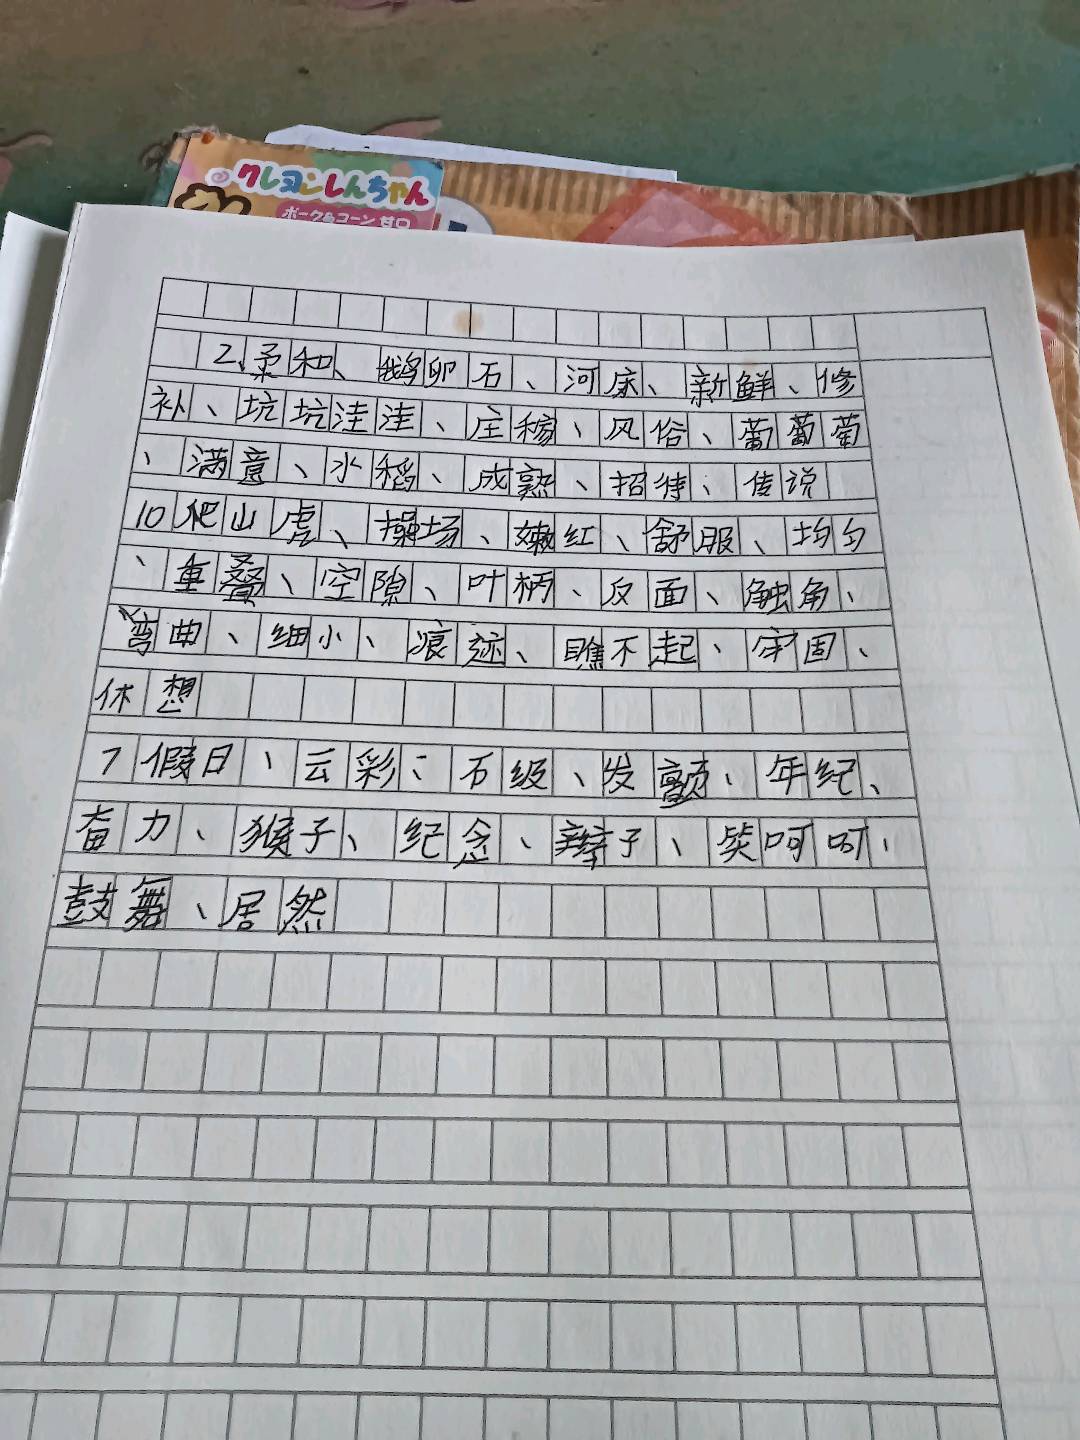 クレヨンしんちゃん
ポーク&コーン 甘口
2、柔和、鹅卵石、河床、新鲜、修
补、坑坑洼洼、庄稼、风俗、葡葡萄
、满意、水稻、成熟、招待、传说
10爬山虎、操场、嫩红、舒服、均匀
、重叠、空隙、叶柄、反面、触角、
弯曲、细小、痕迹、瞧不起、牢固、
休想
7假日、云彩、石级、发颤、年纪、
奋力、猴子、纪念、辫子、笑呵呵、
鼓舞、居然